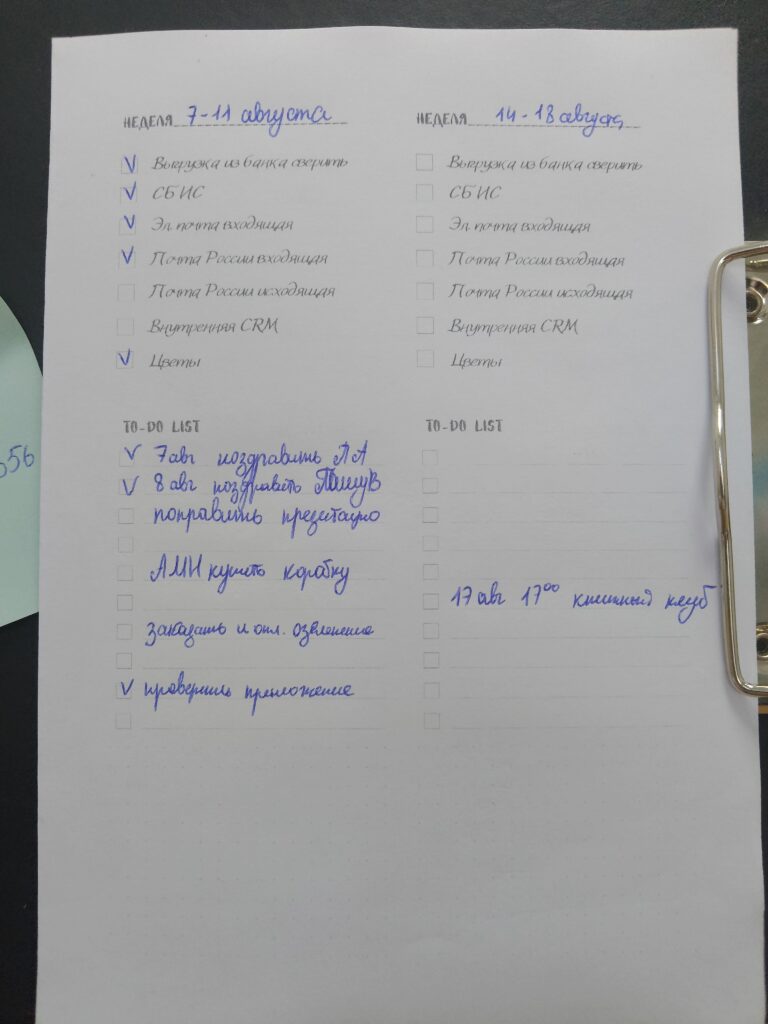 НЕДЕЛЯ 7-11 августа
V Выгрузка из банка сверить
V СБИС
V Эл. почта входящая
V Почта России входящая
Почта России исходящая
Внутренняя CRM
V Цветы
TO-DO LIST
V 7 авг поздравить ЛА
V 8 авг поздравить
поправить презентацию
АМН купить коробку
заказать и опл.
V проверить приложение
НЕДЕЛЯ 14-18 августа
Выгрузка из банка сверить
СБИС
Эл. почта входящая
Почта России входящая
Почта России исходящая
Внутренняя CRM
Цветы
TO-DO LIST
17 авг 17⁰⁰ книжный клуб
056